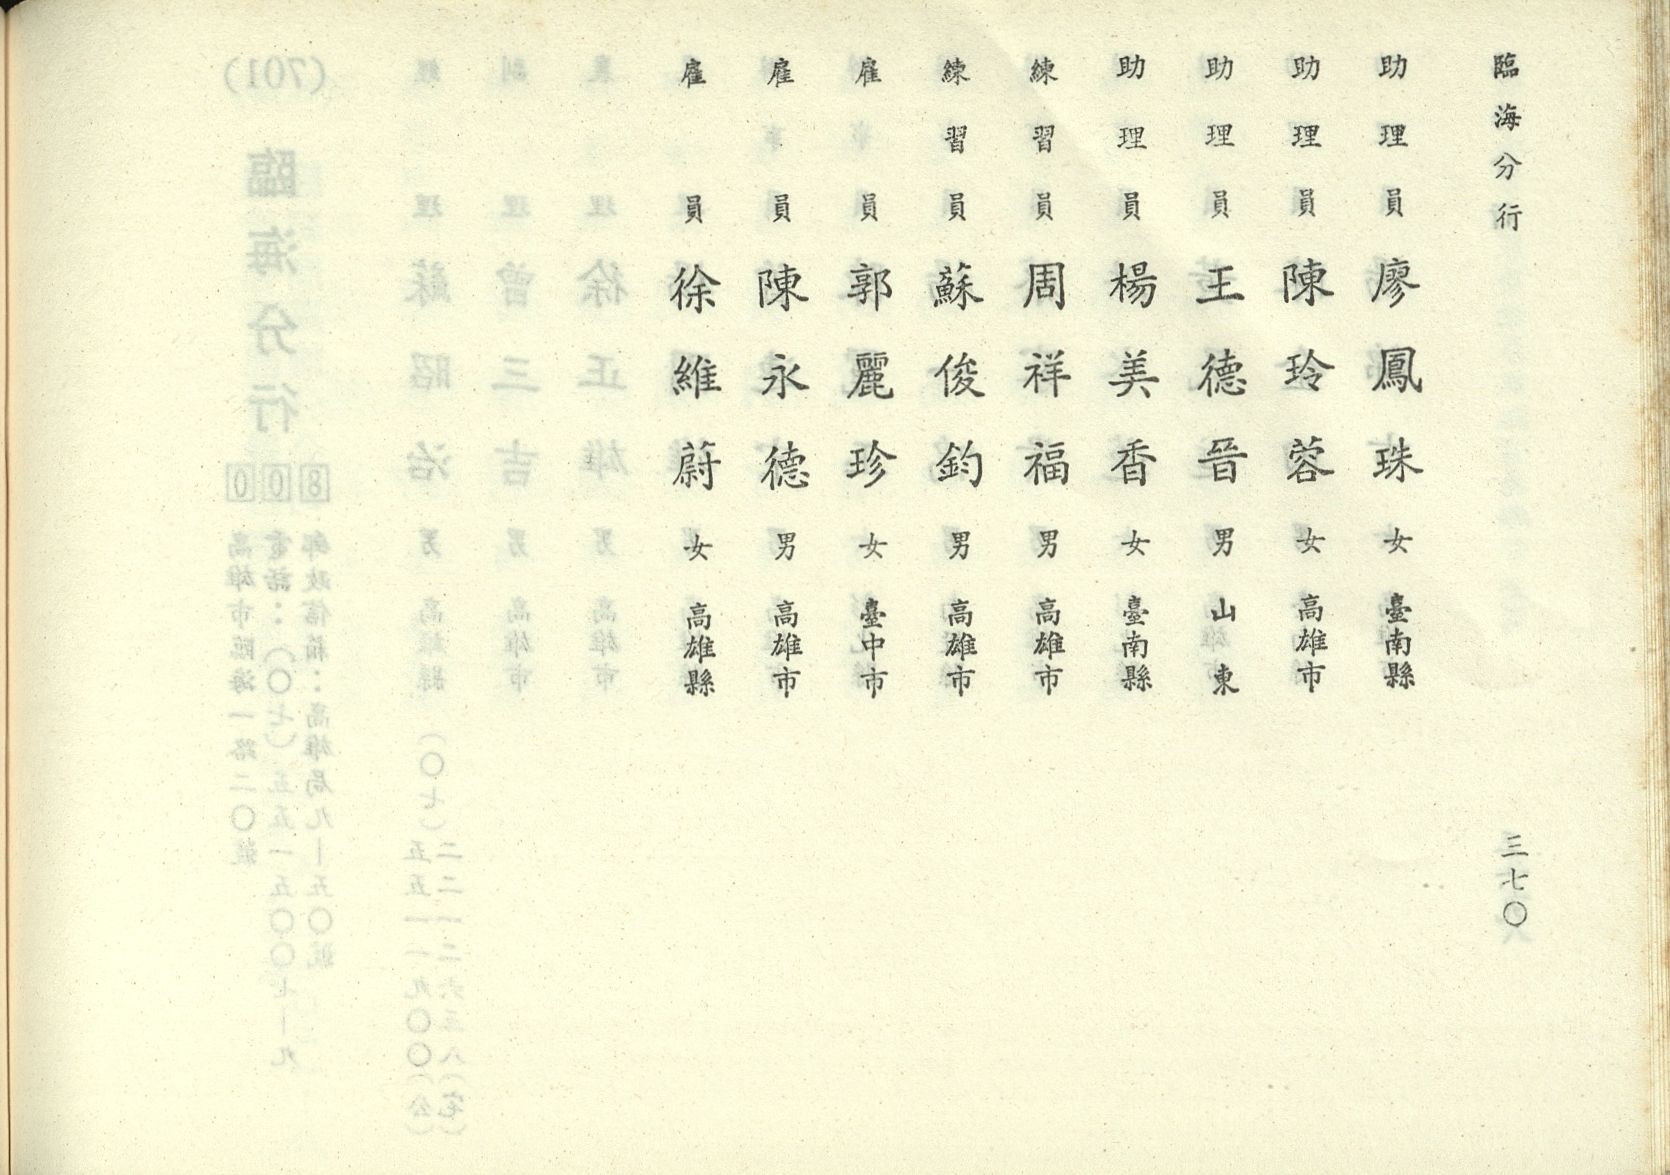 臨海分行
三七〇
助理員 廖鳳珠 女 臺南縣
助理員 陳玲蓉 女 高雄市
助理員 王德晉 男 山東
助理員 楊美香 女 臺南縣
練習員 周祥福 男 高雄市
練習員 蘇俊鈞 男 高雄市
雇員 郭麗珍 女 臺中市
雇員 陳永德 男 高雄市
雇員 徐維蔚 女 高雄縣